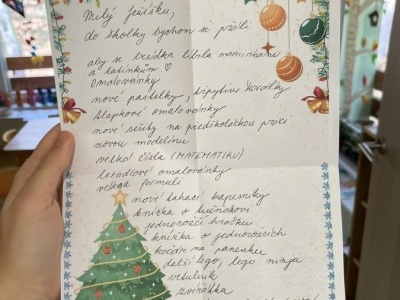 Milý Ježíšku,
do školky bychom si přáli
aby se líbila maminkám
a tatínkům ♡
Omalovánky
nové pastelky, třpytivé
tlapkové omalovánky
nové sešity na předškoláckou práci
novou modelínu
velká čísla (MATEMATIKU)
letadlové omalovánky
velkou formuli
nové tahací kapesníky
knížka o
jednorožčí hračku
knížka o jednorožcích
kočár na panenku
další lego, lego ninja
vrtulník
zvířátka